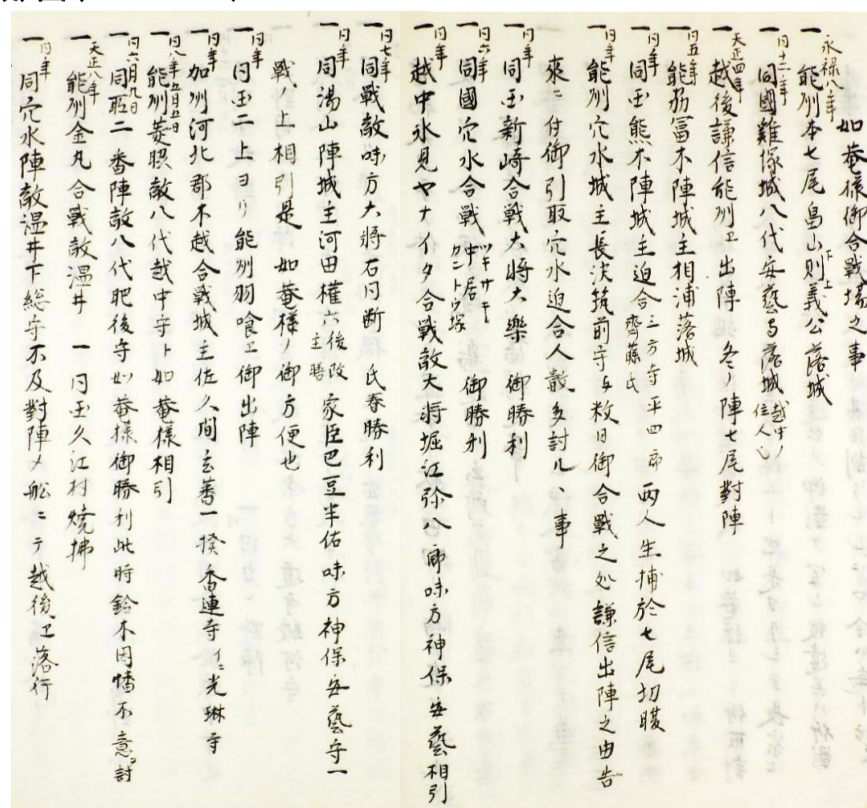 如菴様御合戦場之事
永禄八年
一 能州本七尾畠山則義公落城
同十二年
一 同國難塚城八代安藝守落城 越中ノ住人也
天正四年
一 越後謙信能州エ出陣 冬ノ陣七尾對陣
同五年
一 能州冨木陣城主相浦落城
同年
一 同国熊木陣城主迫合 三方寺平四郎 齊藤氏 両人生捕於七尾切腹
同年
一 能州穴水城主長淡筑前守与数日御合戦之処謙信出陣之由告
来ニ付御引取穴水迫合人数多討ル、事
同年
一 同国新崎合戦大将大樂 御勝利
同六年
一 同國穴水合戦中居 御勝利
同年
一 越中氷見ヤナイタ合戦敵大将堀江弥八郎味方神保安藝相引
同七年
一 同戦敵味方大将右同断 氏春勝利
同年
一 同湯山陣城主河田權六 後改主膳 家臣巴豆半佑味方神保安藝守一
戦ノ上相引是 如菴様ノ御方便也
同年
一 同国二上ヨリ能州羽喰エ御出陣
同年
一 加州河北郡木越合戦城主佐久間玄蕃一揆 光琳寺
同八年五月五日
一 能州菱照敵八代越中守ト如菴様相引
同六月九日
一 同所二番陣敵八代肥後守如菴様御勝利此時鈴木因幡不意ニ討
天正八年
一 能州金丸合戦敵温井 一 同国久江村焼拂
同年
一 同穴水陣敵温井下総守不及對陣メ舩ニテ越後エ落行